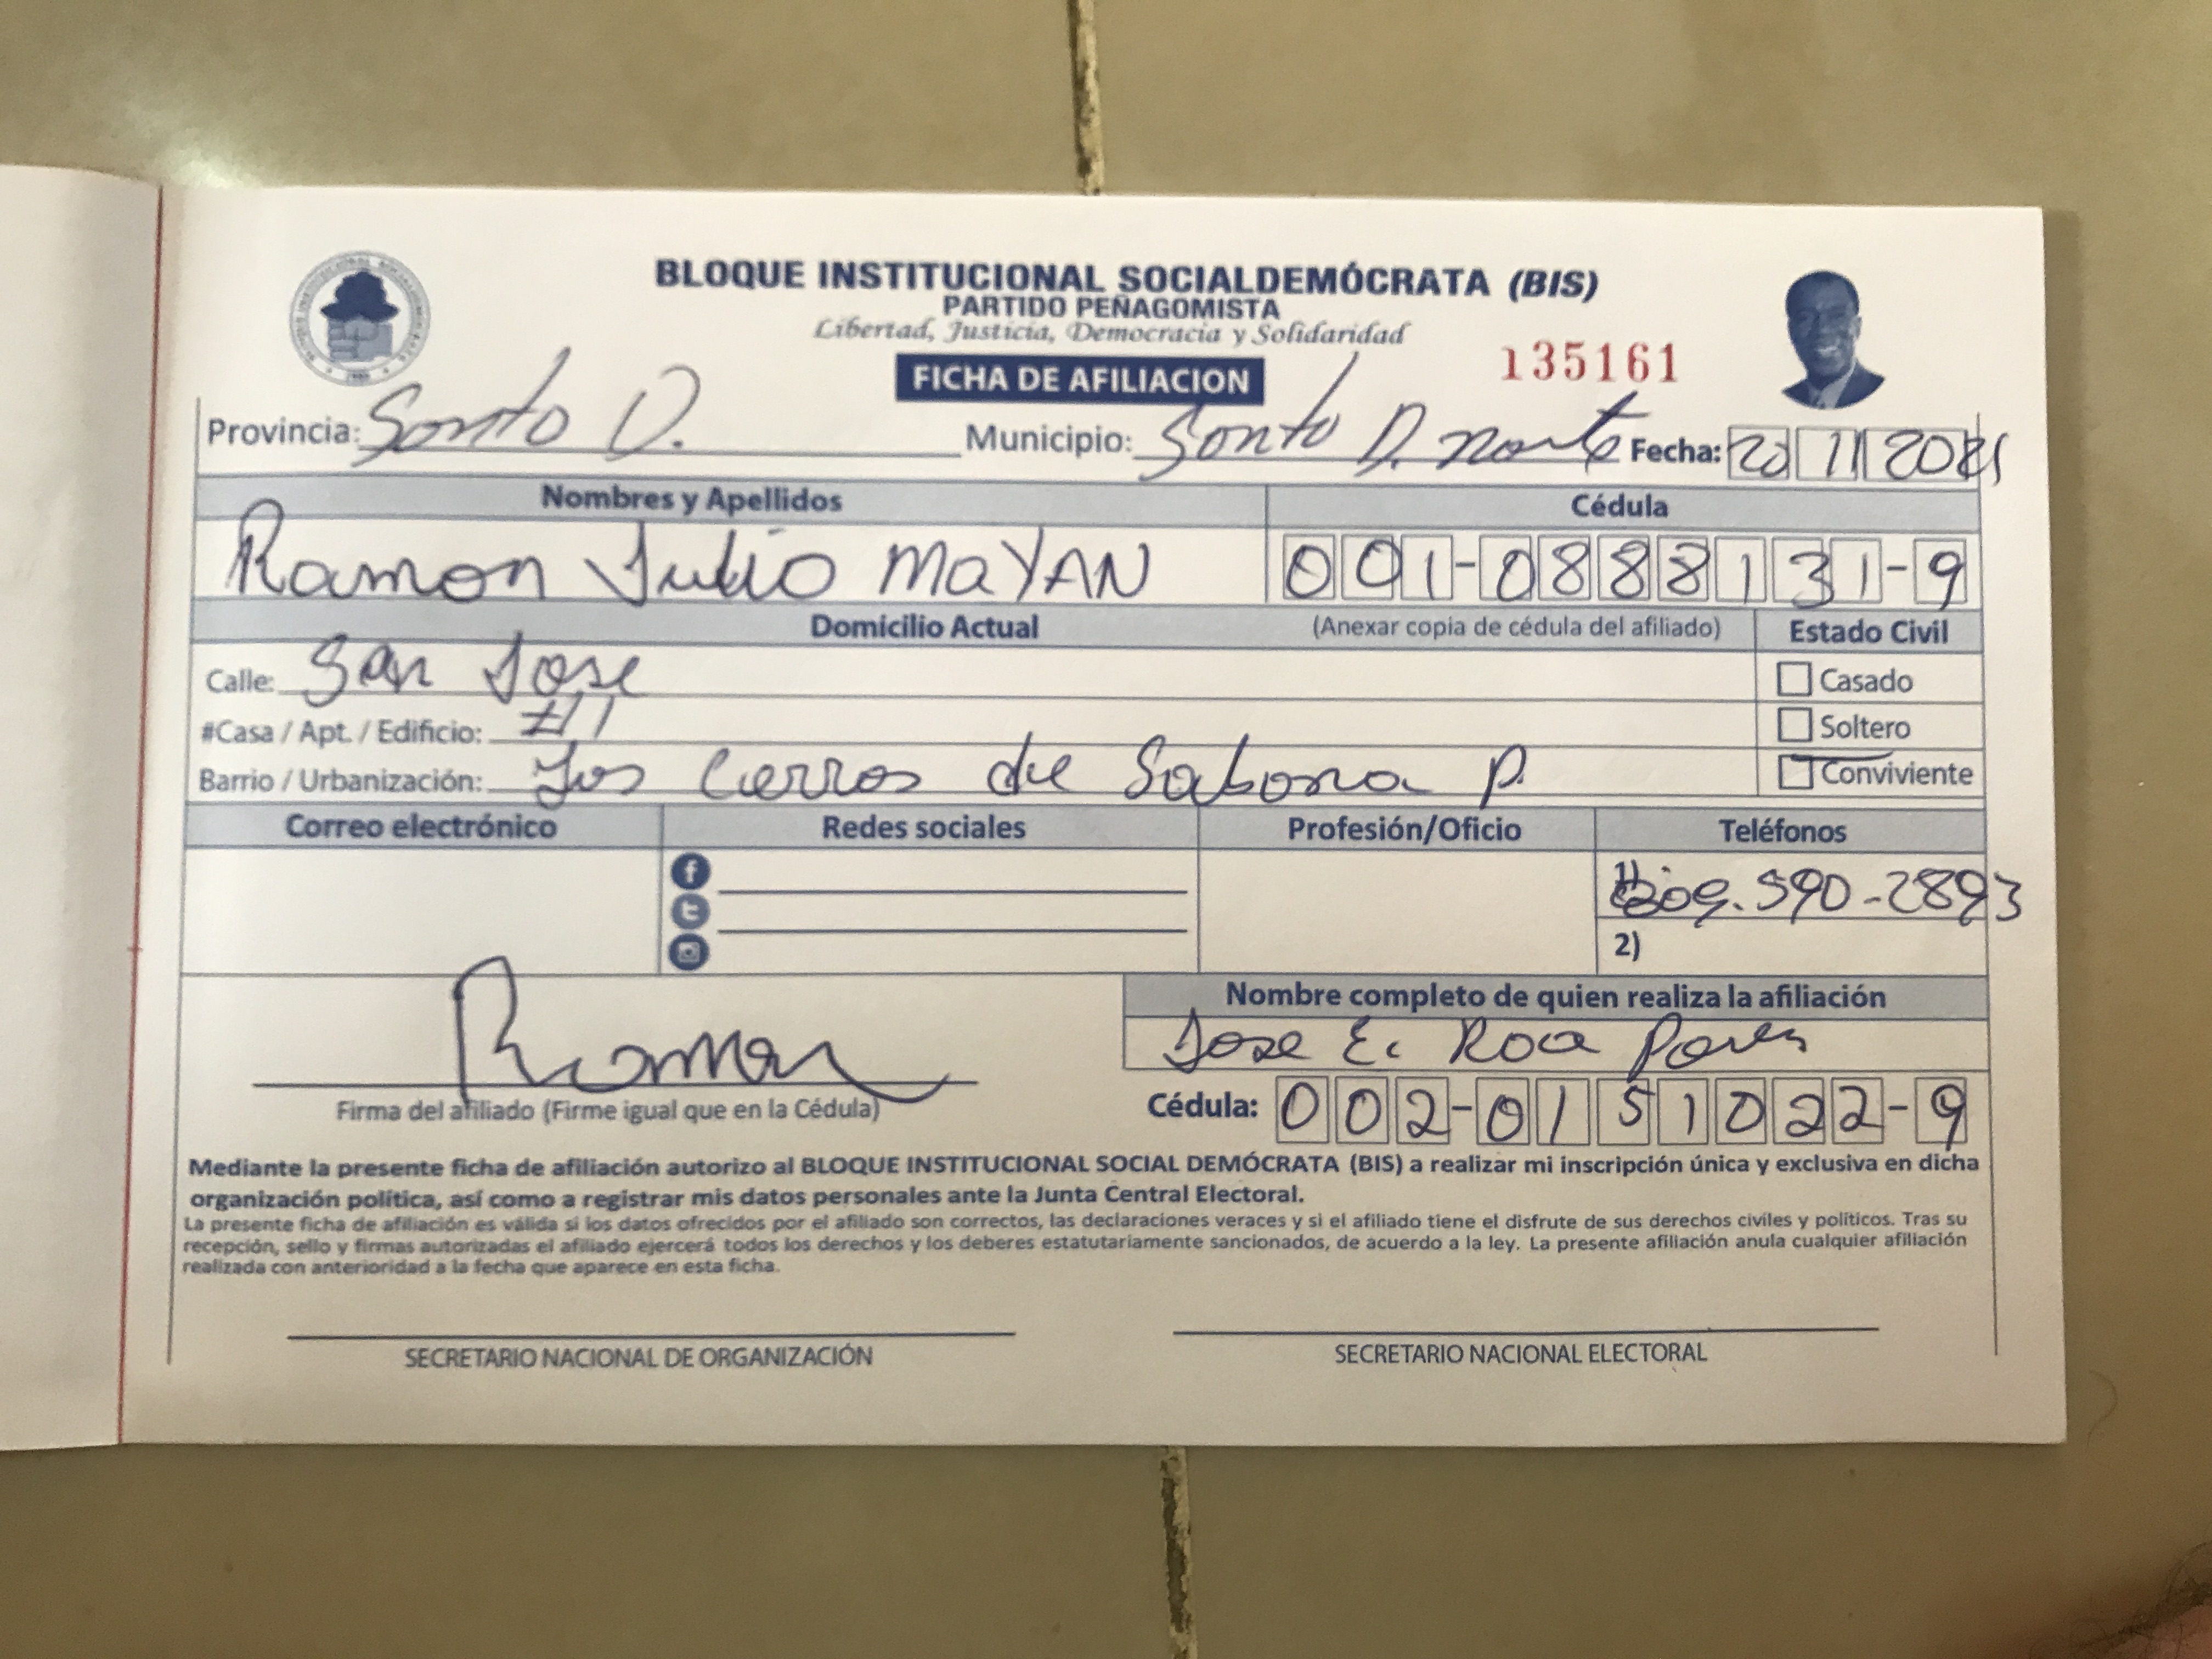 BLOQUE INSTITUCIONAL SOCIALDEMÓCRATA (BIS)
PARTIDO PEÑAGOMISTA
Libertad, Justicia, Democracia y Solidaridad
FICHA DE AFILIACION
135161
Provincia: Santo D. Municipio: Santo D. Norte Fecha: 20 11 2021
Nombres y Apellidos Cédula
Ramon Julio MaYAN 001-0888131-9
Domicilio Actual (Anexar copia de cédula del afiliado) Estado Civil
Calle: San Jose Casado
#Casa / Apt. / Edificio: #11 Soltero
Barrio / Urbanización: Los Cerros de Sabana P. Conviviente
Correo electrónico Redes sociales Profesión/Oficio Teléfonos
1) 809-590-2893
2)
Ramon
Firma del afiliado (Firme igual que en la Cédula)
Nombre completo de quien realiza la afiliación
Jose E. Roa
Cédula: 002-0151022-9
Mediante la presente ficha de afiliación autorizo al BLOQUE INSTITUCIONAL SOCIAL DEMÓCRATA (BIS) a realizar mi inscripción única y exclusiva en dicha
organización política, así como a registrar mis datos personales ante la Junta Central Electoral.
La presente ficha de afiliación es válida si los datos ofrecidos por el afiliado son correctos, las declaraciones veraces y si el afiliado tiene el disfrute de sus derechos civiles y políticos. Tras su
recepción, sello y firmas autorizadas el afiliado ejercerá todos los derechos y los deberes estatutariamente sancionados, de acuerdo a la ley. La presente afiliación anula cualquier afiliación
realizada con anterioridad a la fecha que aparece en esta ficha.
SECRETARIO NACIONAL DE ORGANIZACIÓN SECRETARIO NACIONAL ELECTORAL